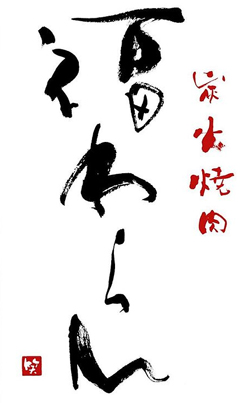 炭火焼肉
福わらん
笑